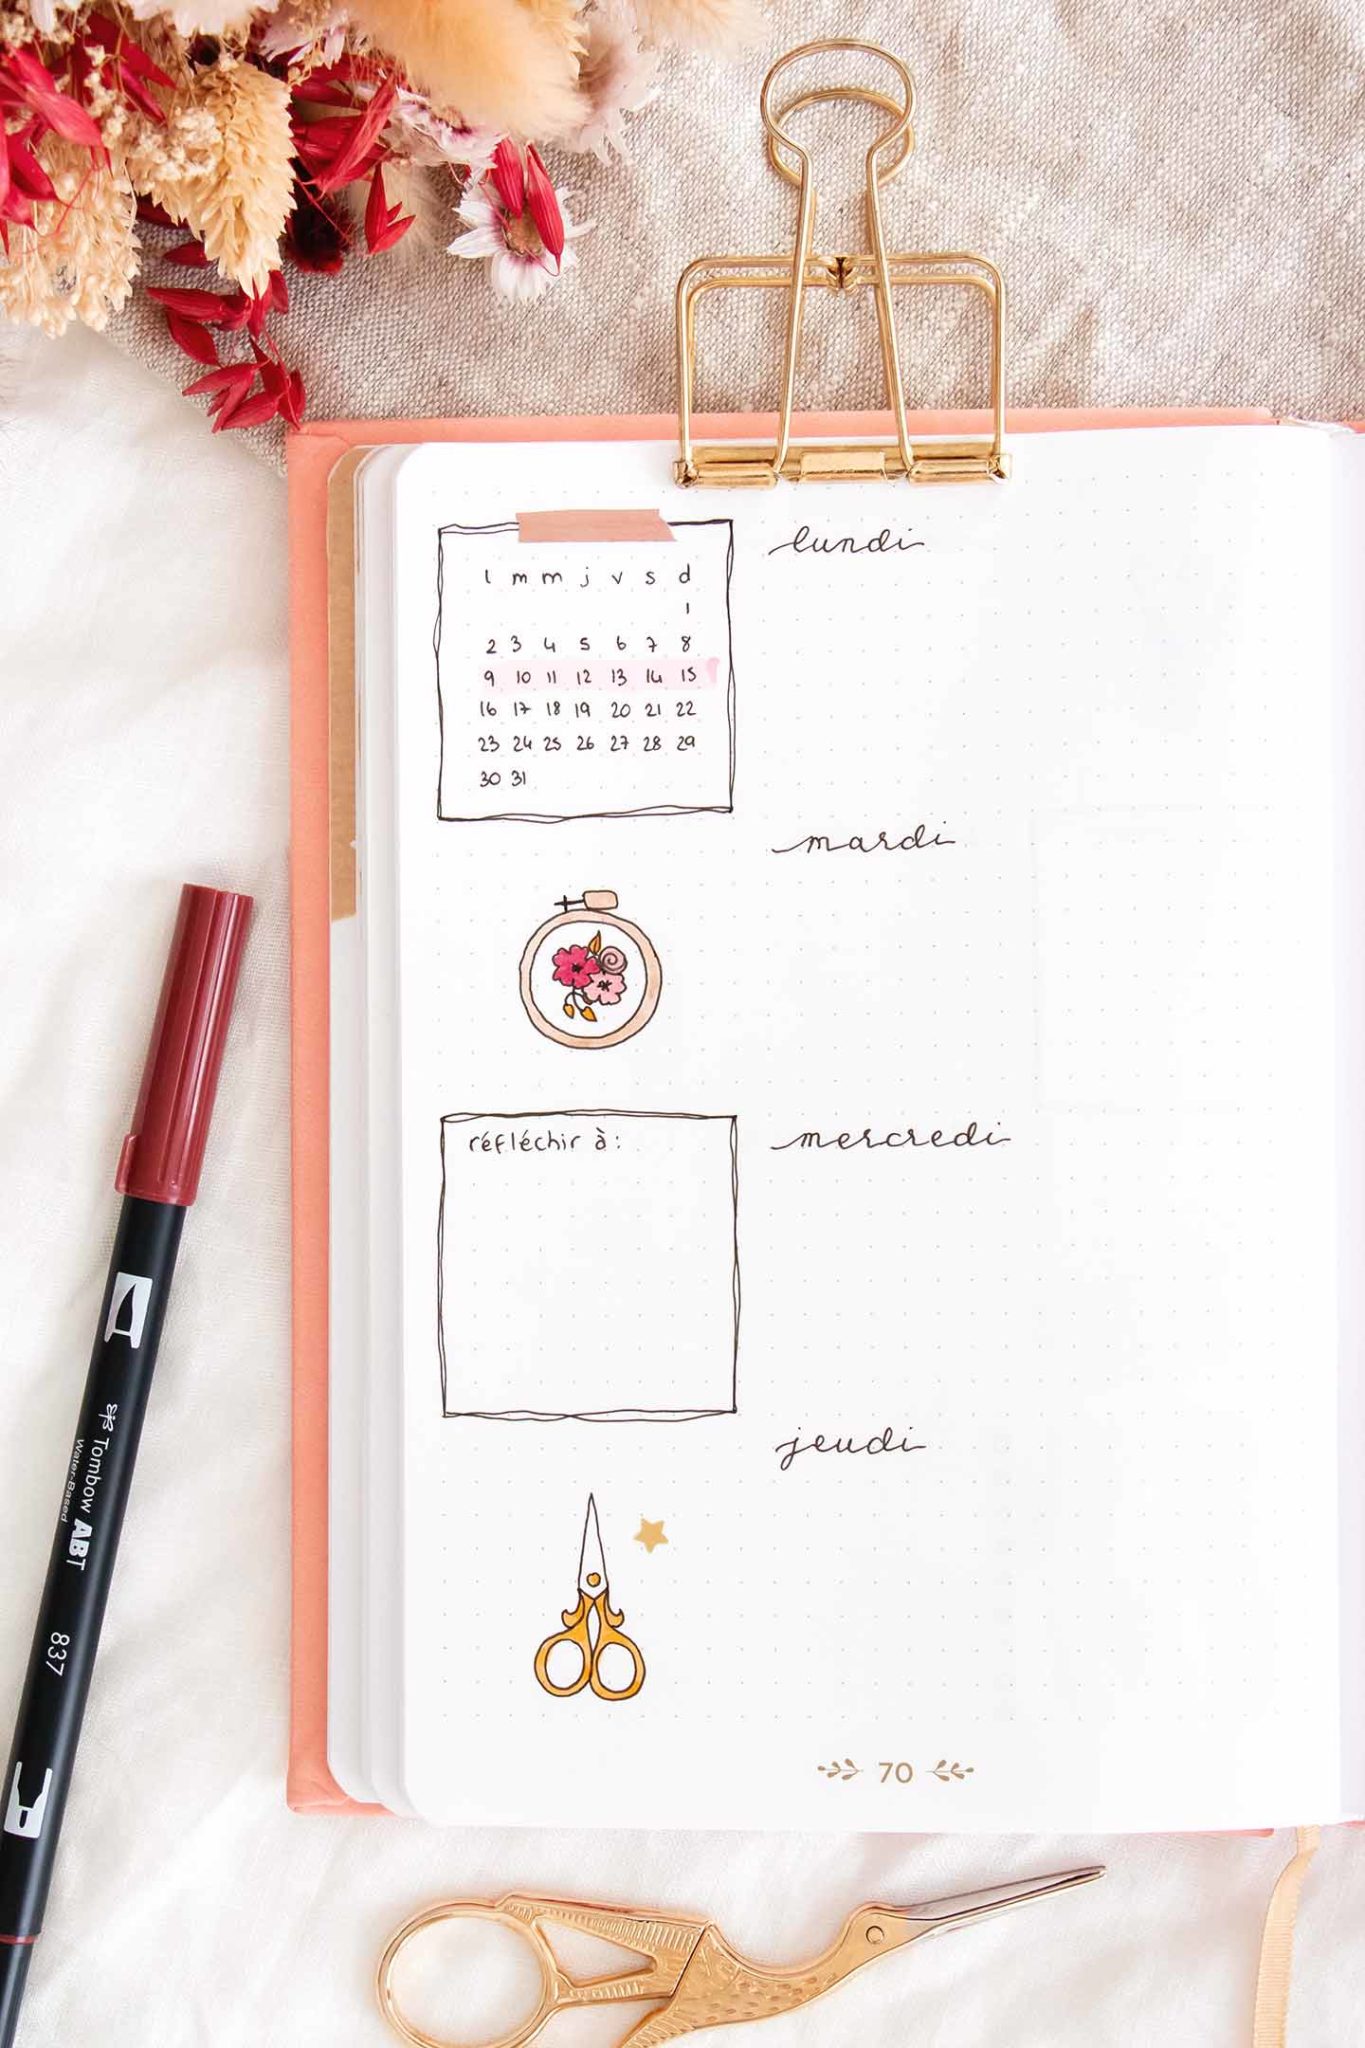 l m m j v s d
1
2 3 4 5 6 7 8
9 10 11 12 13 14 15
16 17 18 19 20 21 22
23 24 25 26 27 28 29
30 31
lundi
mardi
réfléchir à:
mercredi
jeudi
70
Tombow ABT
Water-Based
837